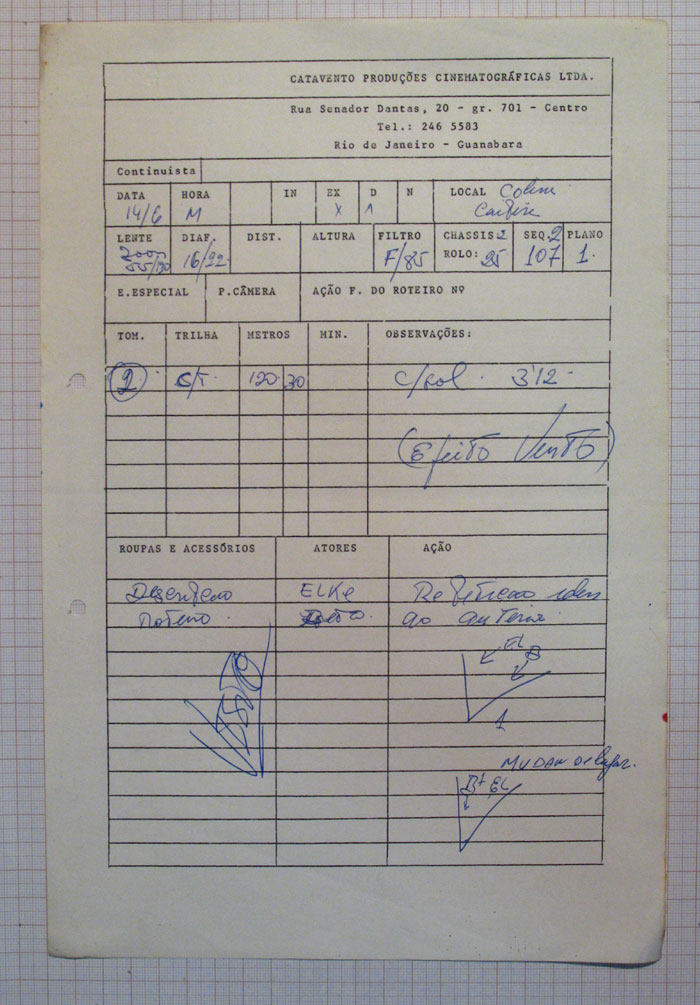 CATAVENTO PRODUÇÕES CINEMATOGRÁFICAS LTDA.
Rua Senador Dantas, 20 - gr. 701 - Centro
Tel.: 246 5583
Rio de Janeiro - Guanabara
Continuista
DATA HORA IN EX D N LOCAL
14/6 M X
LENTE DIAF. DIST. ALTURA FILTRO CHASSIS: 2 SEQ. 2 PLANO
16/22 F/85 ROLO: 25 107 1.
E.ESPECIAL P.CÂMERA AÇÃO F. DO ROTEIRO Nº
TOM. TRILHA METROS MIN. OBSERVAÇÕES:
2 S/T. 120 30 c/sol. 3'12
(Efeito Vento)
ROUPAS E ACESSÓRIOS ATORES AÇÃO
ELKE
ao anterior
EL B
1
MUDAR de lugar.
Bt EL